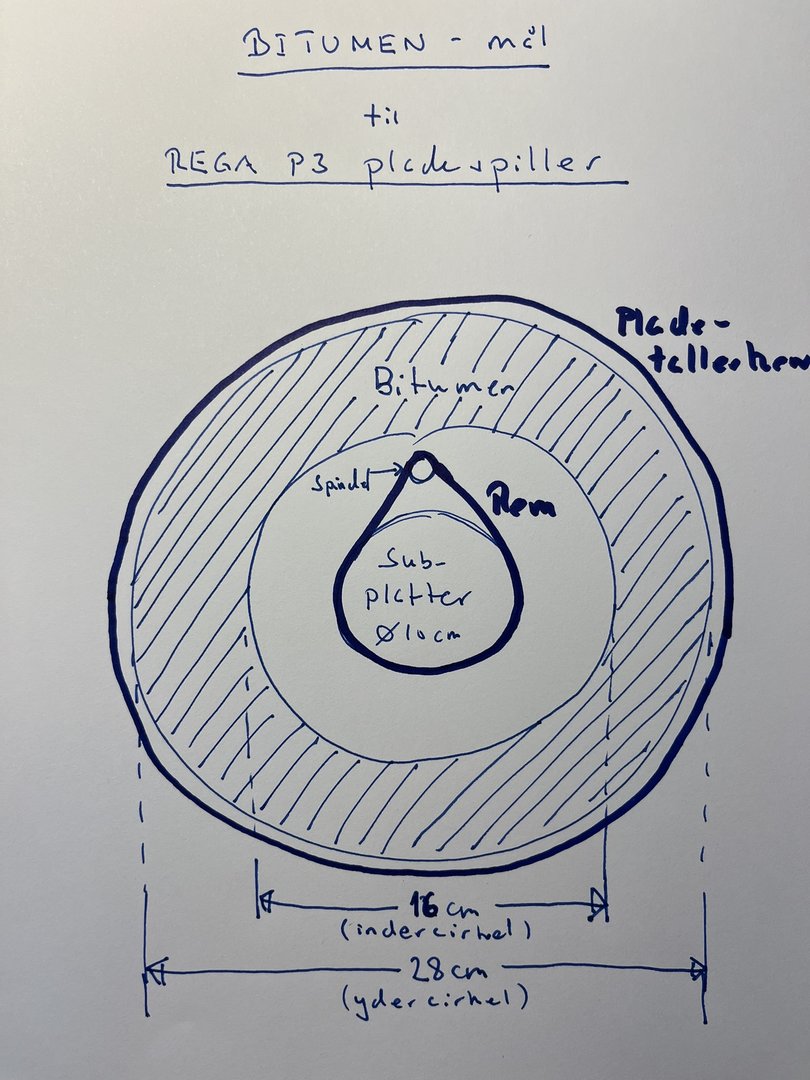 BITUMEN - mål
til
REGA P3 pladespiller
Plade-
tallerken
Bitumen
Spindel
Rem
Sub-
platter
Ø10cm
16 cm
(indercirkel)
28 cm
(ydercirkel)